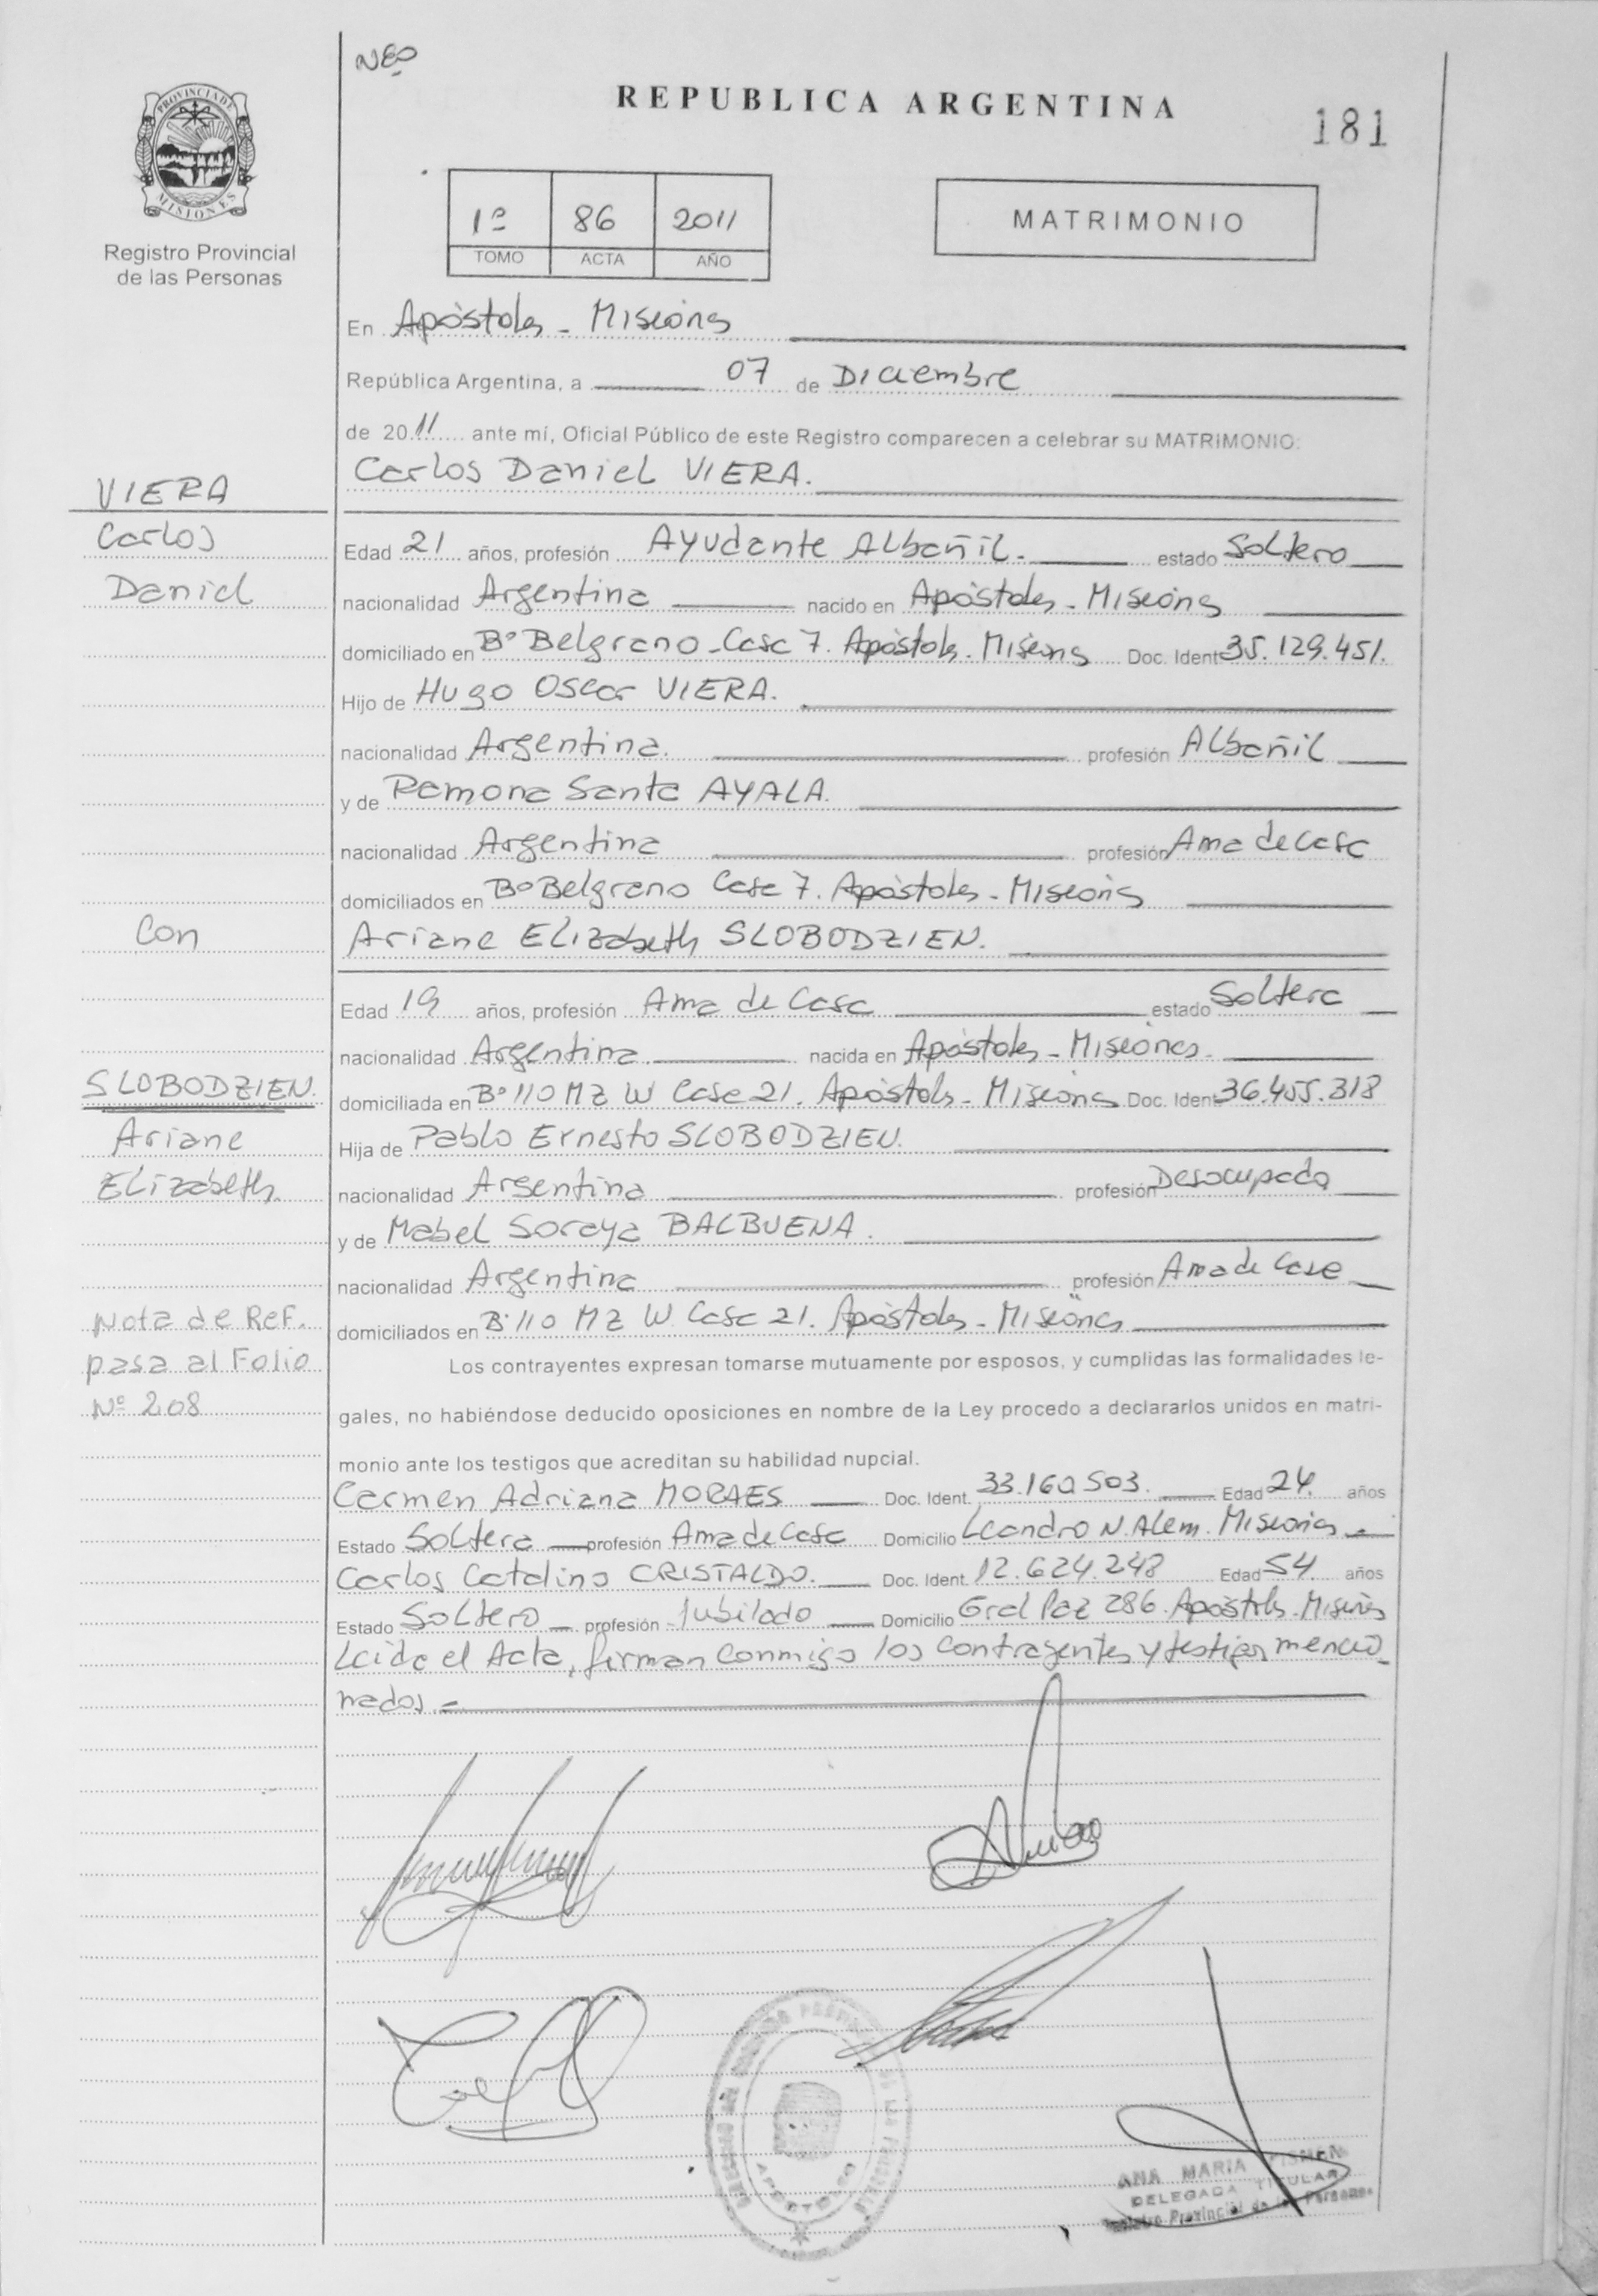 NEO
REPUBLICA ARGENTINA
181
PROVINCIA DE
MISIONES
Registro Provincial
de las Personas
1º 86 2011
TOMO ACTA AÑO
MATRIMONIO
En Apóstoles - Misiones
República Argentina, a 07 de Diciembre
de 2011 ante mí, Oficial Público de este Registro comparecen a celebrar su MATRIMONIO:
VIERA
Carlos Daniel VIERA.
Carlos
Edad 21 años, profesión Ayudante Albañil. estado Soltero
Daniel
nacionalidad Argentina nacido en Apóstoles - Misiones
domiciliado en Bº Belgrano - Casa 7. Apóstoles - Misiones Doc. Ident 35.129.451.
Hijo de Hugo Oscar VIERA.
nacionalidad Argentina. profesión Albañil
y de Ramona Santa AYALA.
nacionalidad Argentina profesión Ama de Casa
domiciliados en Bº Belgrano Casa 7. Apóstoles - Misiones
Con
Ariane Elizabeth SLOBODZIEN.
Edad 19 años, profesión Ama de Casa estado Soltera
nacionalidad Argentina nacida en Apóstoles - Misiones.
SLOBODZIEN.
domiciliada en Bº 110 MZ W Casa 21. Apóstoles - Misiones Doc. Ident 36.455.318
Ariane
Hija de Pablo Ernesto SLOBODZIEN.
Elizabeth
nacionalidad Argentina profesión Desocupado
y de Mabel Soraya BALBUENA.
nacionalidad Argentina profesión Ama de Casa
Nota de Ref.
domiciliados en Bº 110 MZ W Casa 21. Apóstoles - Misiones
pasa al Folio
Los contrayentes expresan tomarse mutuamente por esposos, y cumplidas las formalidades le-
Nº 208
gales, no habiéndose deducido oposiciones en nombre de la Ley procedo a declararlos unidos en matri-
monio ante los testigos que acreditan su habilidad nupcial.
Carmen Adriana MORAES Doc. Ident. 33.160.503. Edad 24. años
Estado Soltera profesión Ama de Casa Domicilio Leandro N. Alem. Misiones
Carlos Catalino CRISTALDO. Doc. Ident. 12.624.248 Edad 54 años
Estado Soltero profesión Jubilado Domicilio Gral Paz 286. Apóstoles - Misiones
Leida el Acta, firman conmigo los contrayentes y testigos mencio-
nados.-
APOSTOLES
ANA MARIA
DELEGADA TITULAR
Registro Provincial de las Personas